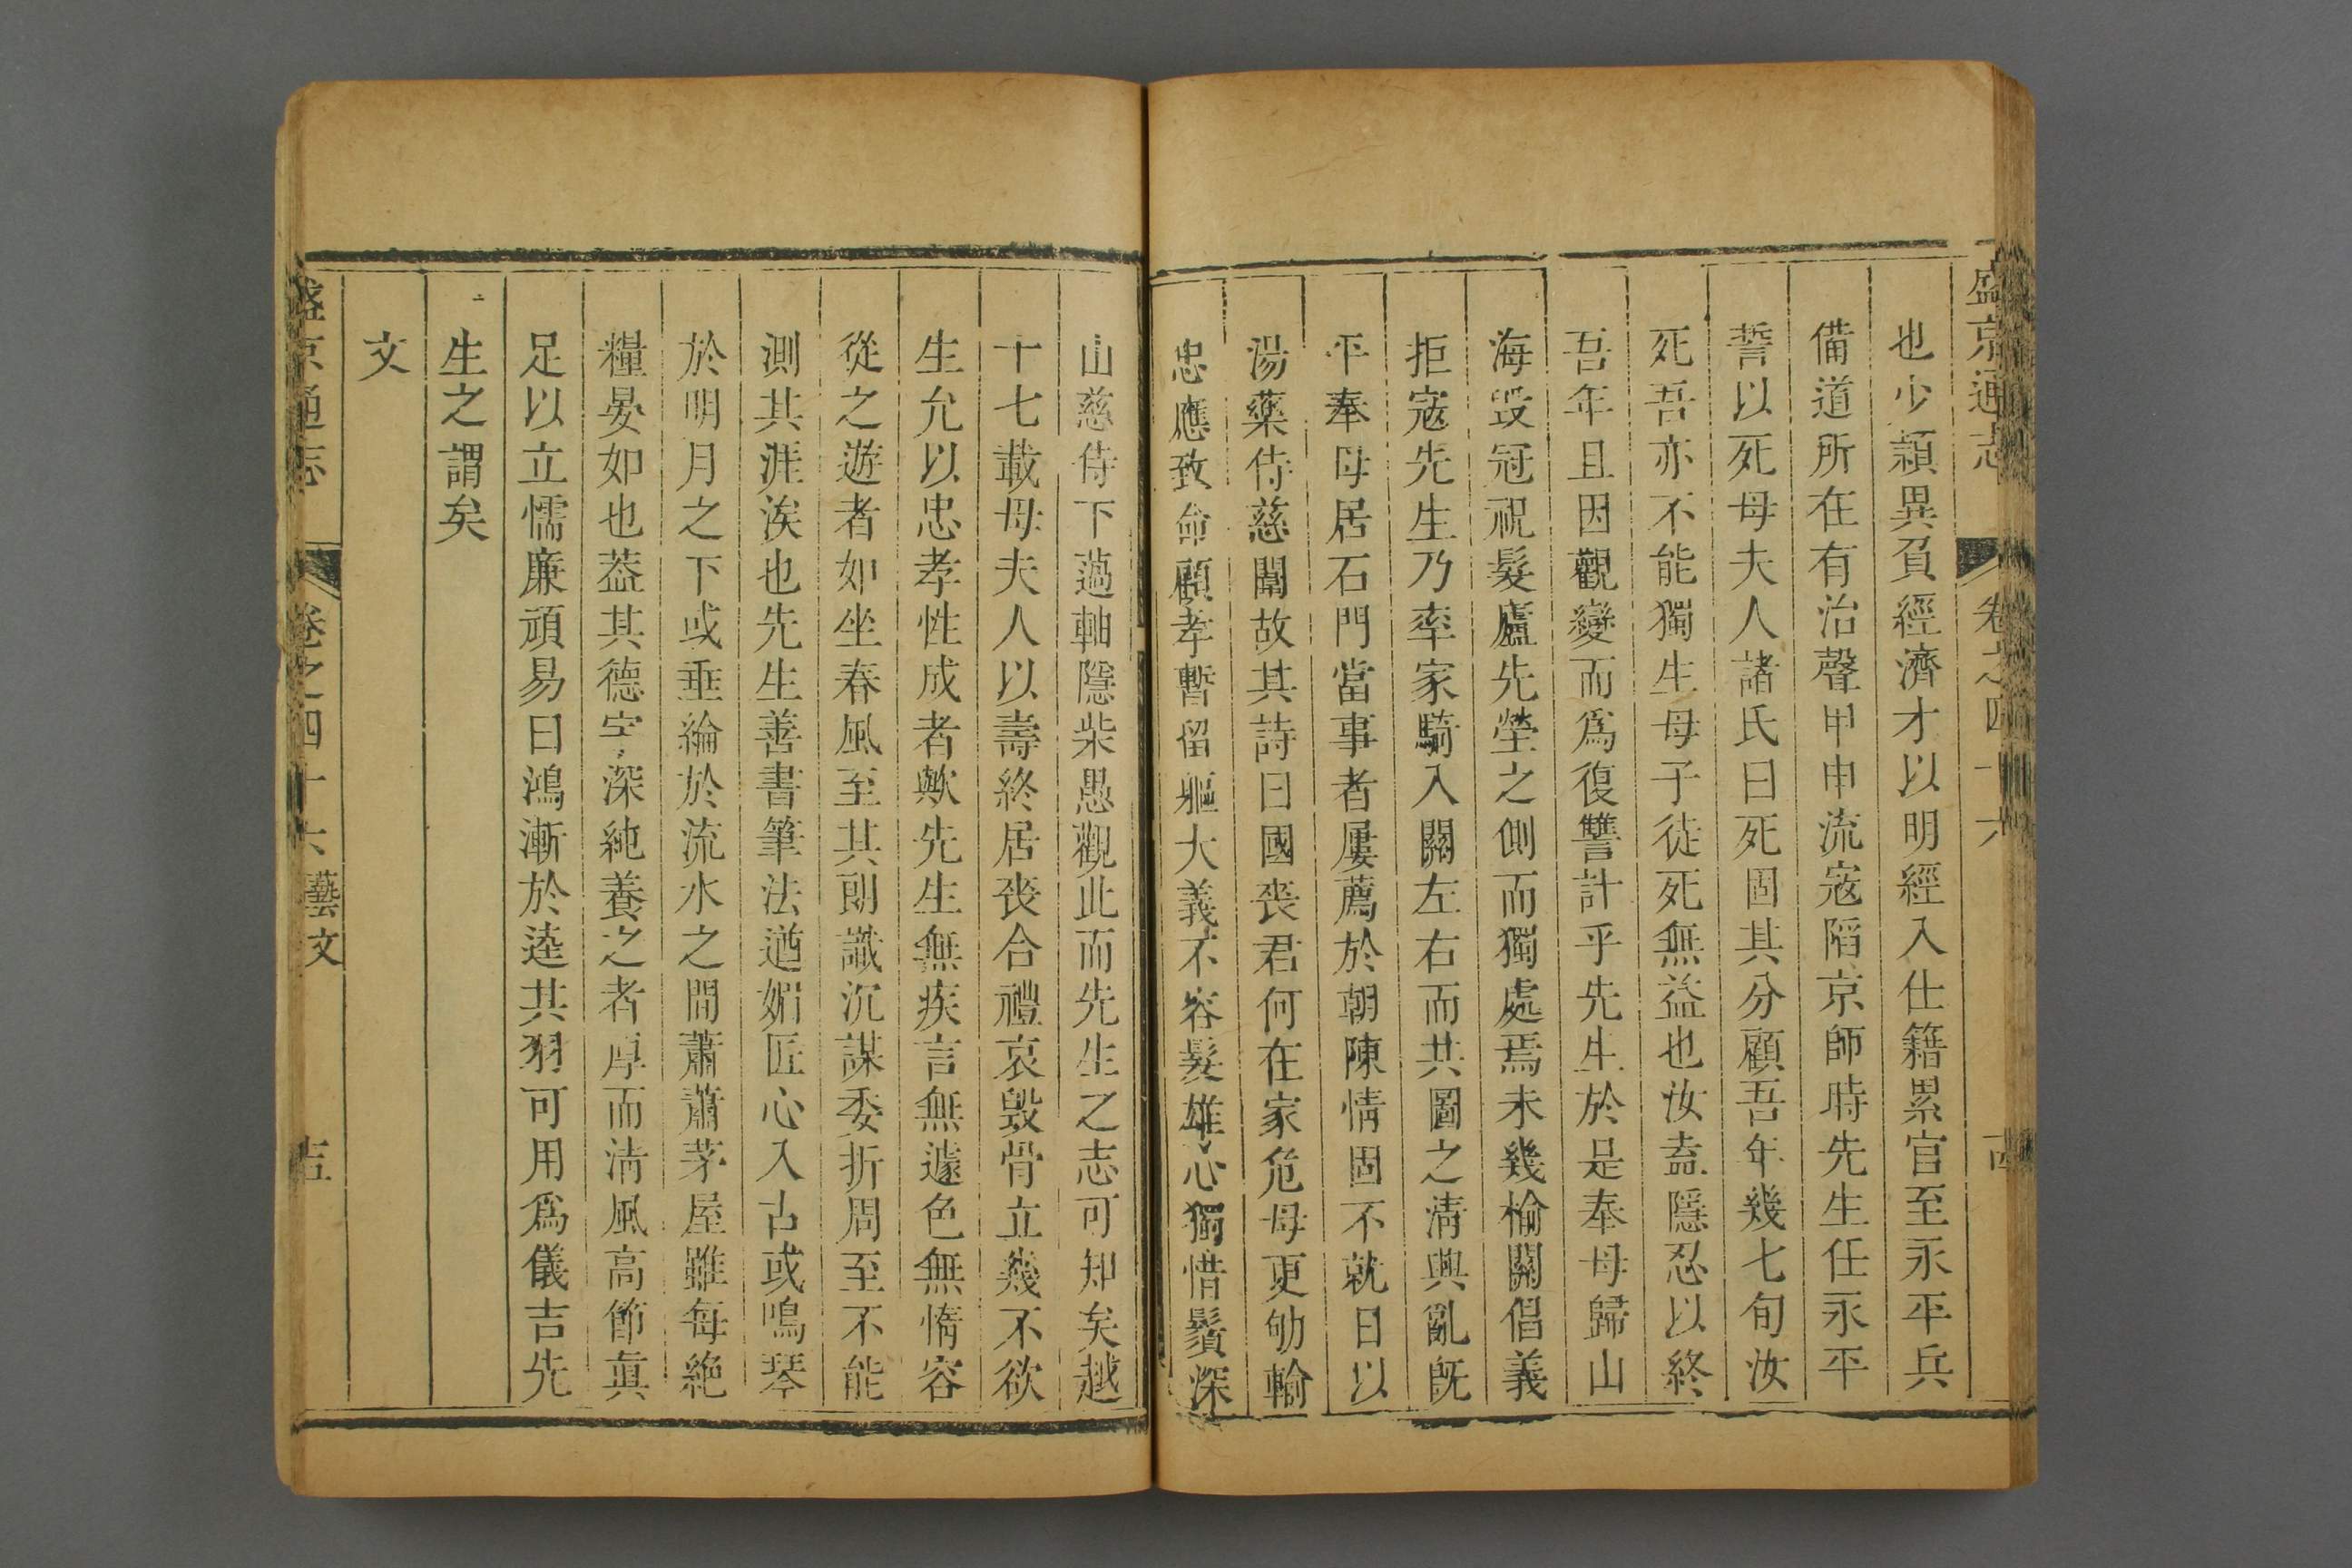 盛京通志 卷之四十六
也少穎異負經濟才以明經入仕籍累官至永平兵
備道所在有治聲甲申流寇陷京師時先生任永平
誓以死母夫人諸氏曰死固其分顧吾年幾七旬汝
死吾亦不能獨生母子徒死無益也汝盍隱忍以終
吾年且因觀變而爲復讐計乎先生於是奉母歸山
海毀冠祝髮廬先塋之側而獨處焉未幾榆關倡義
拒寇先生乃率家騎入關左右而共圖之淸興亂旣
平奉母居石門當事者屢薦於朝陳情固不就日以
湯藥侍慈闈故其詩曰國喪君何在家危母更劬輸
忠應致命顧孝暫留軀大義不容髮雄心獨惜鬚深
山慈侍下薖軸隱柴愚觀此而先生之志可知矣越
十七載母夫人以壽終居喪合禮哀毀骨立幾不欲
生允以忠孝性成者歟先生無疾言無遽色無惰容
從之遊者如坐春風至其朗識沉謀委折周至不能
測其涯涘也先生善書筆法遒媚匠心入古或鳴琴
於明月之下或垂綸於流水之間蕭蕭茅屋雖每絶
糧晏如也葢其德深純養之者厚而淸風高節眞
足以立懦廉頑易曰鴻漸於逵其羽可用爲儀吉先
生之謂矣
文
盛京通志 卷之四十六 藝文